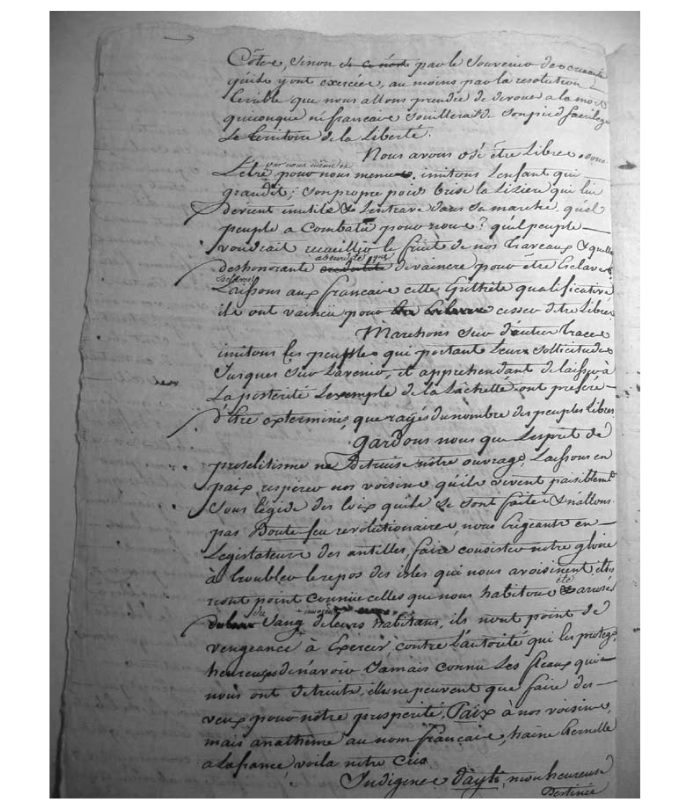 Côtes, sinon par le Souvenir des cruautés
qu'ils y ont exercées, au moins par la resolution
terrible que nous allons prendre de devouer a la mort
quiconque né francais souillerait de son pied sacrilege
Le territoire de la liberté.
Nous avons osé être Libres, osons
L'être par nous mêmes et pour nous memes. imitons l'enfant qui
grandit; son propre poids brise la lisiere qui lui
devient inutile & l'entrave dans sa marche. quel
peuple a combatu pour nous? quel peuple
voudrait recueillir le fruit de nos travaux & quelle
deshonorante absurdité que de vaincre pour être Esclaves
Esclaves
Laissons aux francais cette Epithete qualificative
ils ont vaincu pour cesser d'être Libres
Marchons sur d'autres traces
imitons les peuples qui portant Leurs sollicitudes
Jusques sur L'avenir, et apprehendant de laisser à
La posterité L'exemple de la Lacheté ont preferé
d'être exterminés que rayés du nombre des peuples libres
gardons nous que L'esprit de
proselitisme ne Detruise notre ouvrage, Laissons en
paix respirer nos voisins qu'ils vivent paisiblement
Sous l'égide des loix qu'ils se sont faites & n'allons
pas Boute feu revolutionnaires, nous Erigeants en
Legislateurs des antilles, faire consister notre gloire
à troubler le repos des isles qui nous avoisinent elles
n'ont point comme celles que nous habitons été arrosées
du Sang innocent de leurs habitans, ils n'ont point de
vengeance à Exercer contre l'autorité qui les protege
heureuses de n'avoir Jamais connu Les fleaux qui
nous ont detruits, elles ne peuvent que faire des
vœux pour notre prosperité, Paix à nos voisins,
mais anathême au nom francais, haine Eternelle
a la france, voila notre Cris
Indigenes d'ayti, mon heureuse
Destinée